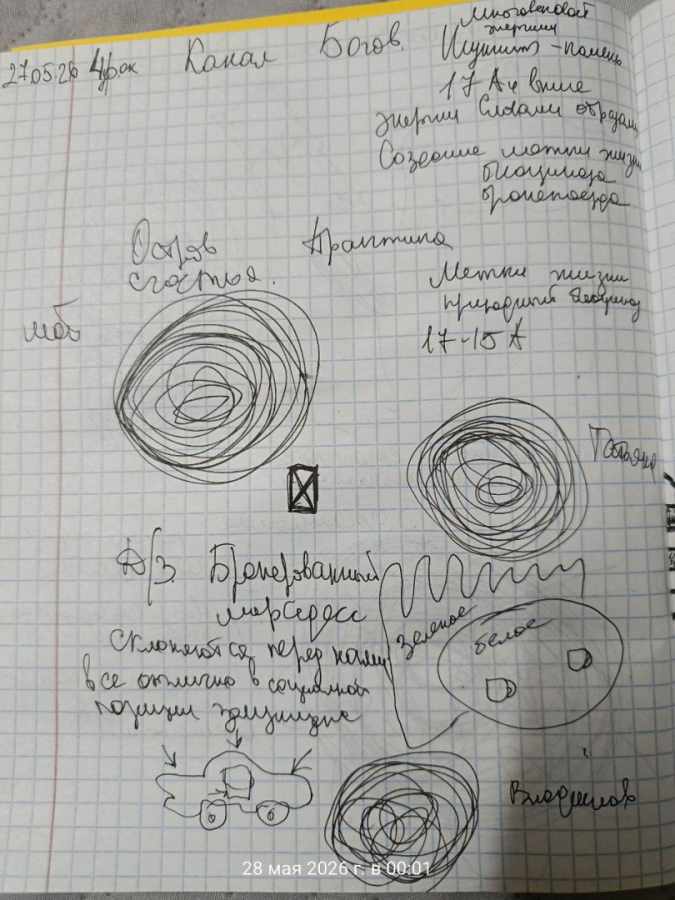 27.05.26 Урок Канал Богов
многовековой
энергии
17 А и выше
энергии Силами образами
Создание метки жизни
бронепоезда
Остров
счастья.
Практика
Метки жизни
природный
17-15 А
моб
Татьяна
Д/З. Бронированный
мерседес
Склоняются перед нами
все отлично в социальной
позиции
зеленое
белое
Владислав
28 мая 2026 г. в 00:01